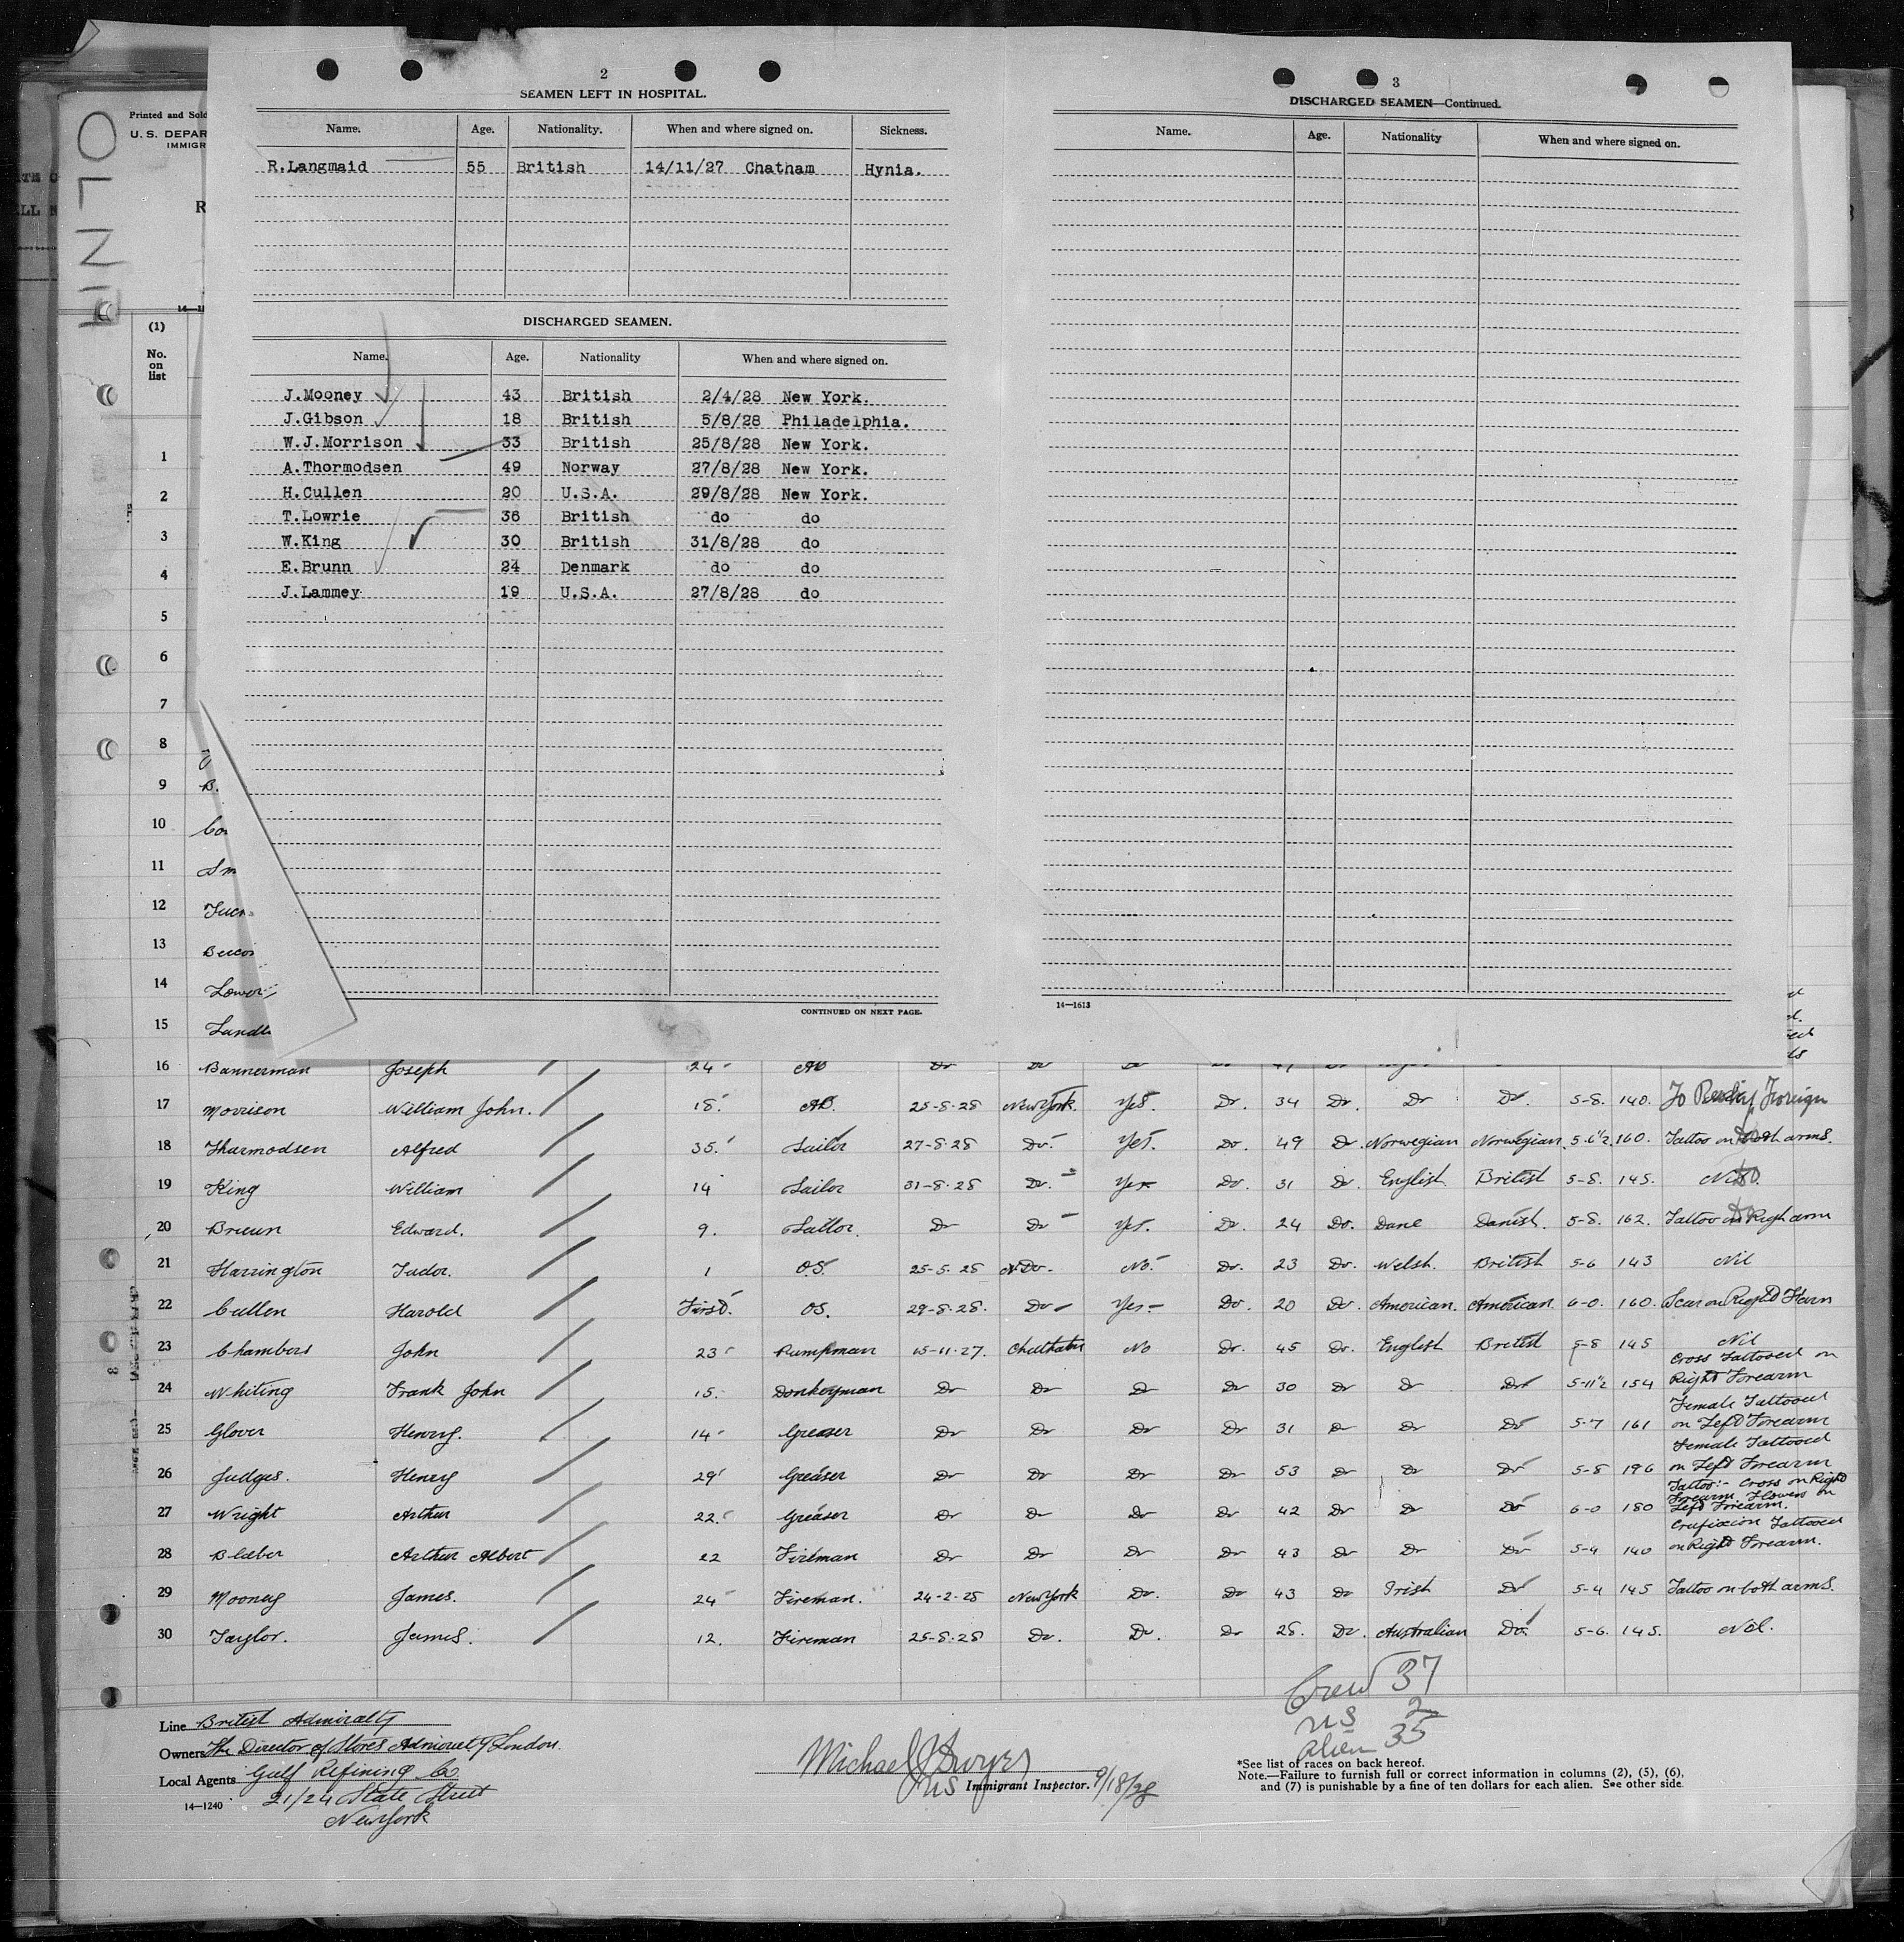 2
SEAMEN LEFT IN HOSPITAL.
Name. Age. Nationality. When and where signed on. Sickness.
R.Langmaid 55 British 14/11/27 Chatham Hynia.
DISCHARGED SEAMEN.
Name. Age. Nationality When and where signed on.
J.Mooney 43 British 2/4/28 New York.
J.Gibson 18 British 5/8/28 Philadelphia.
W.J.Morrison 33 British 25/8/28 New York.
A.Thormodsen 49 Norway 27/8/28 New York.
H.Cullen 20 U.S.A. 29/8/28 New York.
T.Lowrie 36 British do do
W.King 30 British 31/8/28 do
E.Brunn 24 Denmark do do
J.Lammey 19 U.S.A. 27/8/28 do
CONTINUED ON NEXT PAGE.
3
DISCHARGED SEAMEN—Continued.
Name. Age. Nationality When and where signed on.
14—1613
Printed and Sold
U. S. DEPAR
IMMIGR
(1)
No.
on
list
1
2
3
4
5
6
7
8
9 B.
10
11 Sm
12
13
14 Lower
15
16 Bannerman Joseph 24 AB Do Do Do
17 Morrison William John. 18. AB. 25-8-28 New York. Yes. Do. 34 Do. Do Do. 5-8. 140. Foreign
18 Tharmodsen Alfred 35. Sailor 27-8-28 Do. Yes. Do. 49 Do. Norwegian Norwegian. 5-6½. 160. Tattoo on both arms.
19 King William 14 Sailor 31-8-28 Do. Yes Do. 31 Do. English British 5-8. 145.
20 Bruun Edward. 9. Sailor. Do Do Yes. Do. 24 Do. Dane Danish. 5-8. 162. Tattoo on Righ arm
21 Harrington Tudor. 1 O.S. 25-5-28 Do. No. Do. 23 Do. Welsh. British 5-6 143 Nil
22 Cullen Harold First. OS. 29-8-28. Do Yes Do. 20 Do. American. American 6-0. 160. Scar on Right
23 Chambers John 23 Pumpman 15-11-27. Chatham No Do. 45 Do. English British 5-8 145 Nil
24 Whiting Frank John 15. Donkeyman Do Do Do Do 30 Do Do Do 5-11½ 154 Cross Tattooed on Right Forearm
25 Glover Henry. 14 Greaser Do Do Do Do 31 Do Do Do 5-7 161 Female Tattooed on Left Forearm
26 Judges. Henry 29 Greaser Do Do Do Do 53 Do Do Do 5-8 196 Female Tattooed on Left Forearm
27 Wright Arthur 22. Greaser Do Do Do Do 42 Do Do Do 6-0 180 Tattoo:- Cross on Right Forearm Flowers on Left Forearm.
28 Arthur Albert 22 Fireman Do Do Do Do 43 Do Do Do 5-4 140 Crufixion Tattooed on Right Forearm.
29 Mooney James. 24 Fireman. 24-2-28 New York Do. Do 43 Do Irish Do 5-4 145 Tattoo on both arms.
30 Taylor. James. 12. Fireman 25-8-28 Do. Do. Do 28. Do. Australian Do. 5-6. 145. Nil.
Crew 37
US 2
Alien 35
Line British Admiralty
Owners The Director of Stores Admiralty London.
Local Agents Gulf Refining Co.
21/24 State Street
New York
14—1240
Michael J Dwyer
US Immigrant Inspector. 9/18/28
*See list of races on back hereof.
Note.—Failure to furnish full or correct information in columns (2), (5), (6),
and (7) is punishable by a fine of ten dollars for each alien. See other side.